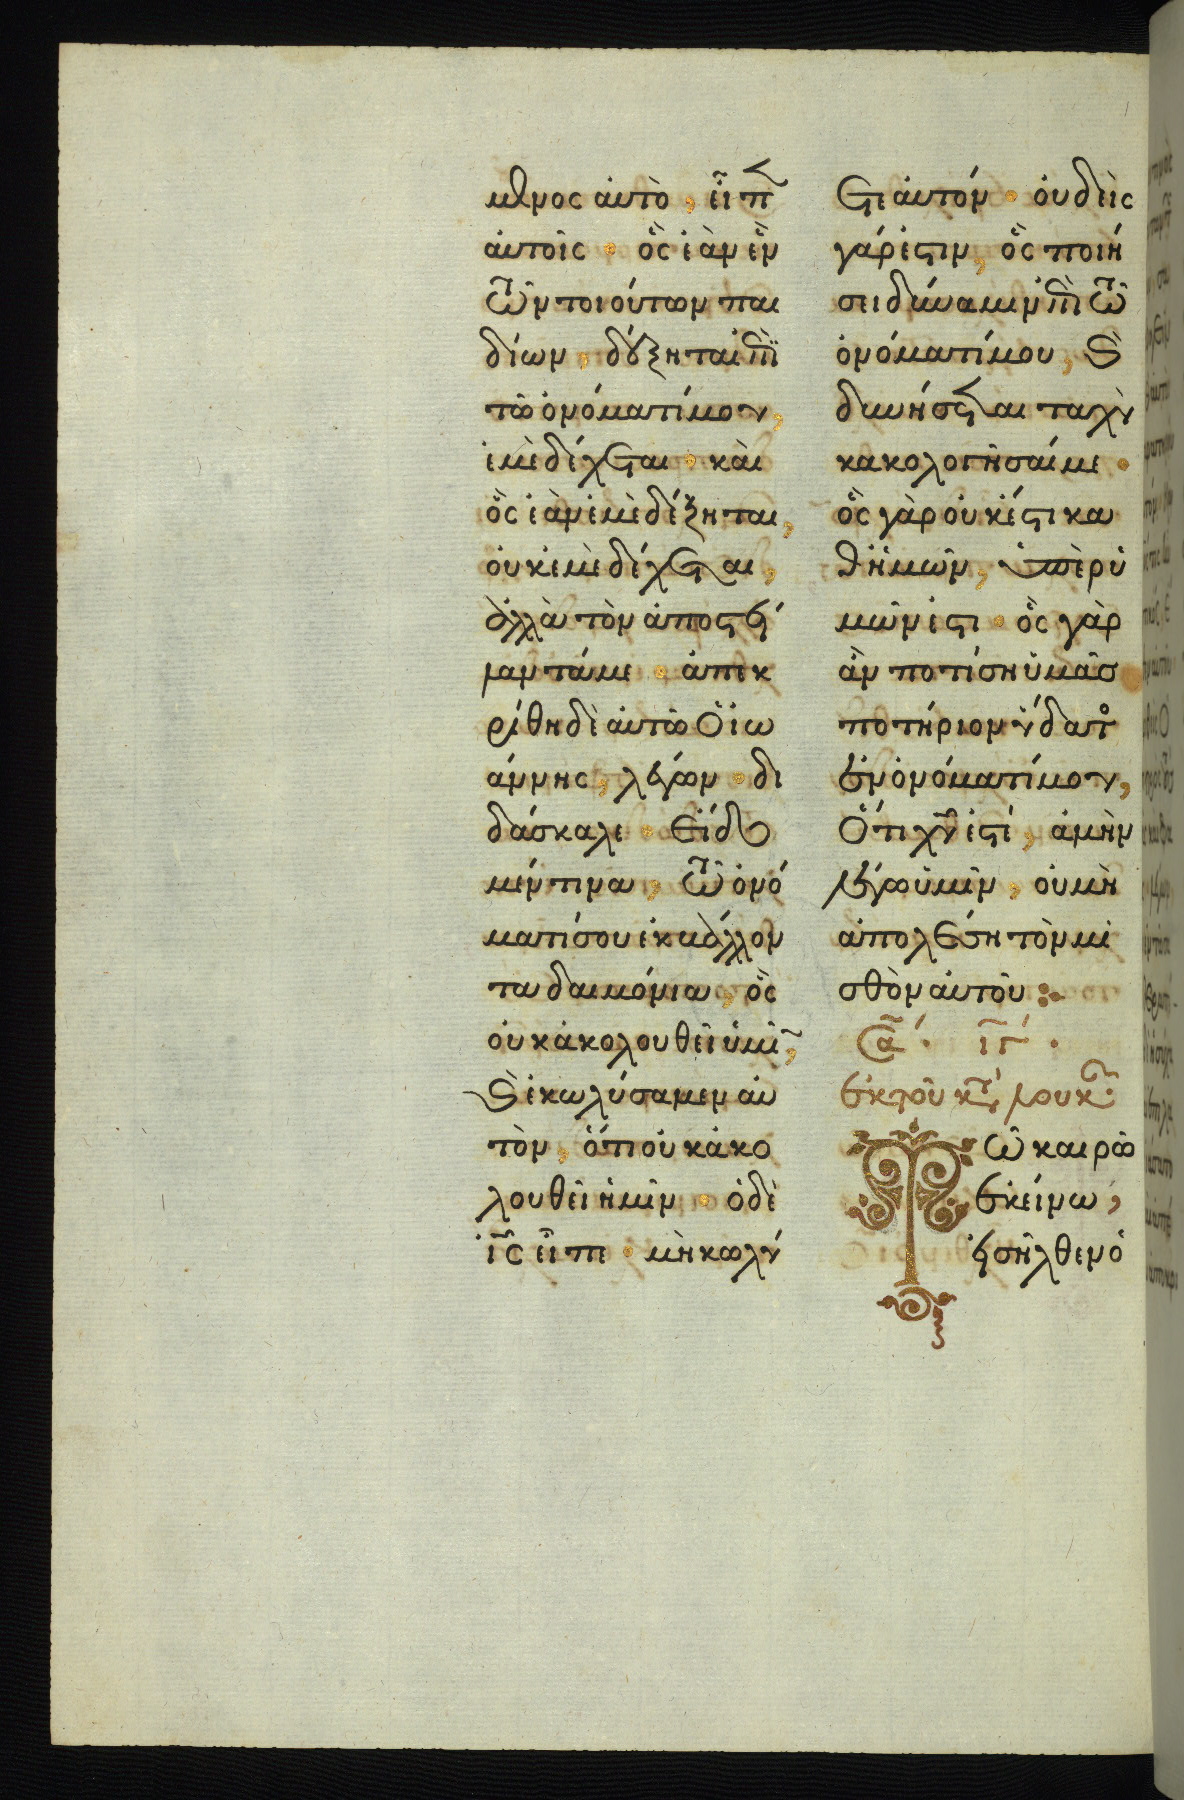 μενος αὐτὸ, εἶπεν
αὐτοῖς · ὃς ἐὰν ἓν
τῶν τοιούτων παι
δίων, δέξηται ἐπὶ
τῶ ὀνόματί μου,
ἐμὲ δέχεται · καὶ
ὃς ἐὰν ἐμὲ δέξηται,
οὐκ ἐμὲ δέχεται,
ἀλλὰ τὸν ἀποστεί
λαντά με · ἀπεκ
ρίθη δὲ αὐτῶ ὁ ἰω
άννης, λέγων · δι
δάσκαλε · εἴδο
μέν τινα, τῶ ὀνό
ματί σου ἐκβάλλον
τα δαιμόνια, ὃς
οὐκ ἀκολουθεῖ ὑμῖ,
καὶ ἐκωλύσαμεν αὐ
τὸν, ὅτι οὐκ ἀκο
λουθεῖ ἡμῖν · ὁ δὲ
ἰς εἶπε · μὴ κωλύ
ετε αὐτόν · οὐδεὶς
γάρ ἐστιν, ὃς ποιή
σει δύναμιν ἐπὶ τῶ
ὀνόματί μου, καὶ
δυνήσεται ταχὺ
κακολογῆσαί με ·
ὃς γὰρ οὐκ ἔστι κα
θ ἡμῶν, ὑπὲρ ὑ
μῶν ἐστι · ὃς γὰρ
ἂν ποτίση ὑμᾶς
ποτήριον ὕδατος
ἐν ὀνόματί μου,
ὅτι χυ ἐστέ, ἀμὴν
λέγω ὑμῖν, οὐ μὴ
ἀπολέση τὸν μι
σθὸν αὐτοῦ :
σα · ιγ ·
ἐκ τοῦ κατὰ λουκᾶν ·
Τῶ καιρῶ
ἐκείνω,
εἰσῆλθεν ὁ